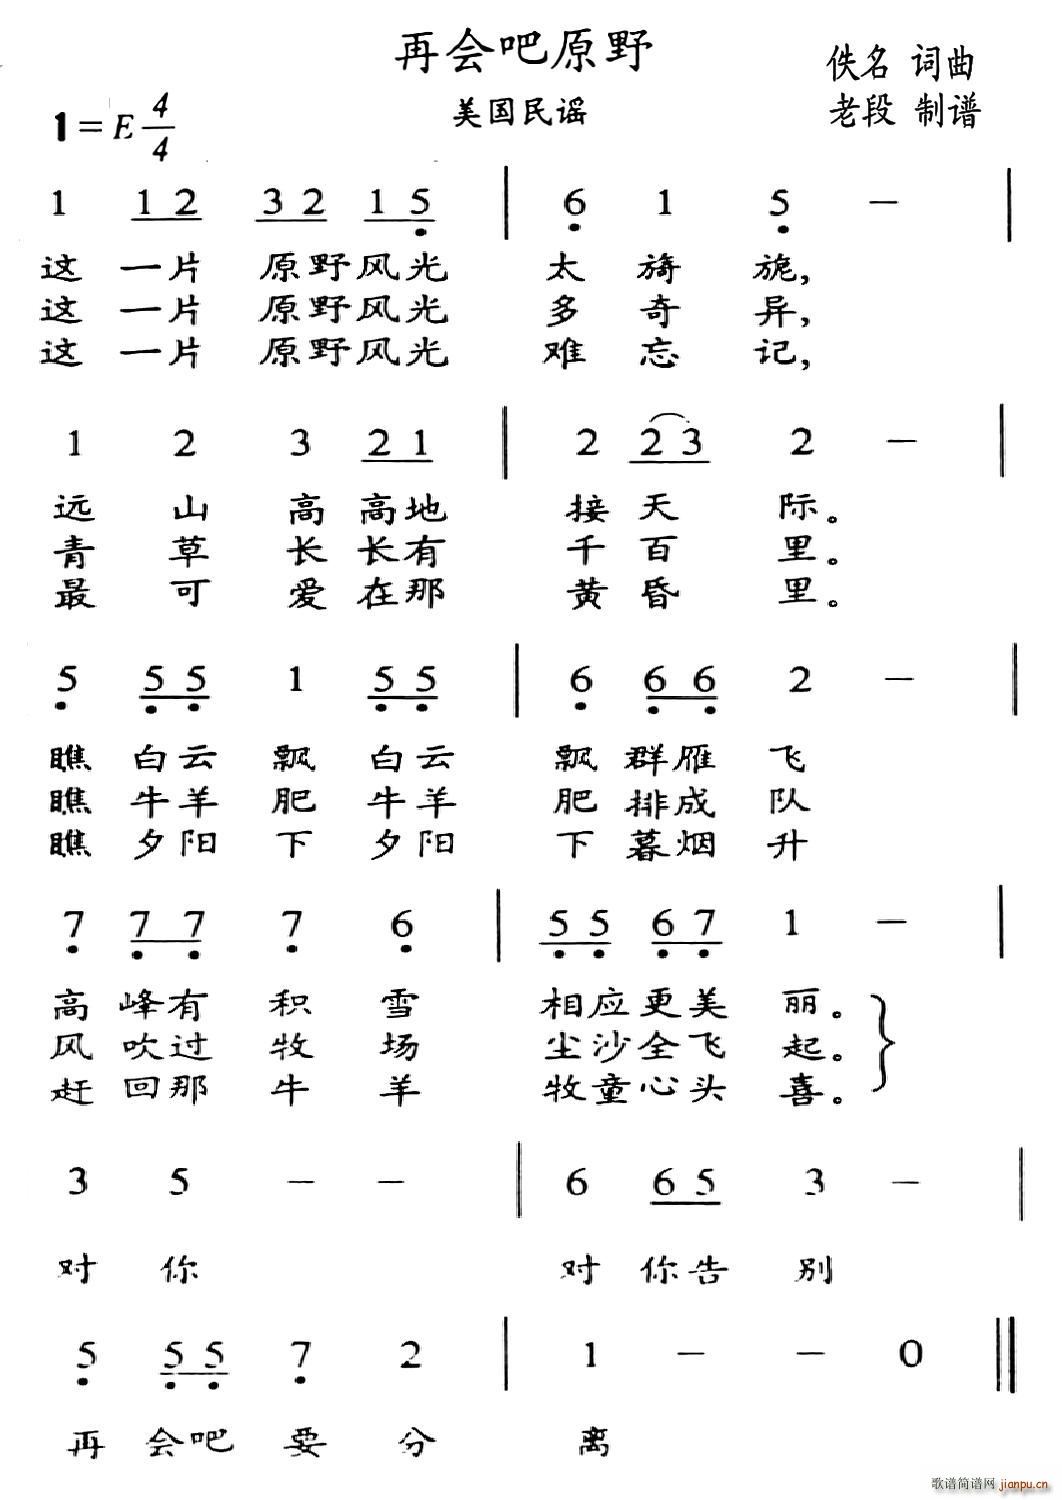 再会吧原野
佚名 词曲
美国民谣
老段 制谱
1=E 4/4
1 1 2 3 2 1 5 | 6 1 5 — |
这 一片 原野风光 太 旖 旎,
这 一片 原野风光 多 奇 异,
这 一片 原野风光 难 忘 记,
1 2 3 2 1 | 2 2 3 2 — |
远 山 高 高地 接 天 际。
青 草 长 长有 千 百 里。
最 可 爱 在那 黄 昏 里。
5 5 5 1 5 5 | 6 6 6 2 — |
瞧 白云 飘 白云 飘 群雁 飞
瞧 牛羊 肥 牛羊 肥 排成 队
瞧 夕阳 下 夕阳 下 暮烟 升
7 7 7 7 6 | 5 5 6 7 1 — |
高 峰有 积 雪 相应更美 丽。
风 吹过 牧 场 尘沙全飞 起。
赶 回那 牛 羊 牧童心头 喜。
3 5 — — | 6 6 5 3 — |
对 你 对 你告 别
5 5 5 7 2 | 1 — — 0 ‖
再 会吧 要 分 离
歌谱简谱网 jianpu.cn